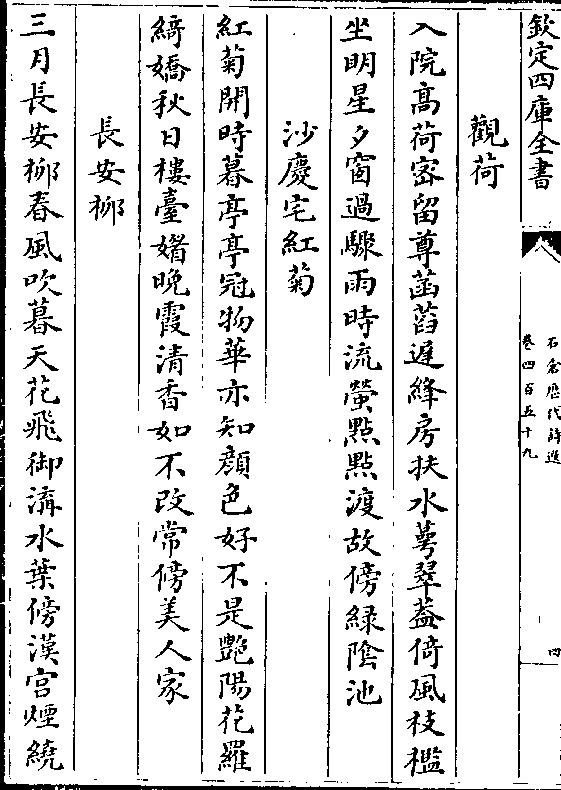 欽定四庫全書
石倉歷代詩選
卷四百五十九
四
觀荷
入院高荷密留尊菡萏遲絳房扶水萼翠蓋倚風枝檻
坐明星夕窗過驟雨時流螢點點渡故傍緑陰池
沙慶宅紅菊
紅菊開時暮亭亭冠物華亦知顔色好不是艷陽花羅
綺嬌秋日樓臺媚晚霞清香如不改常傍美人家
長安柳
三月長安柳春風吹暮天花飛御溝水葉傍漢宫煙繞